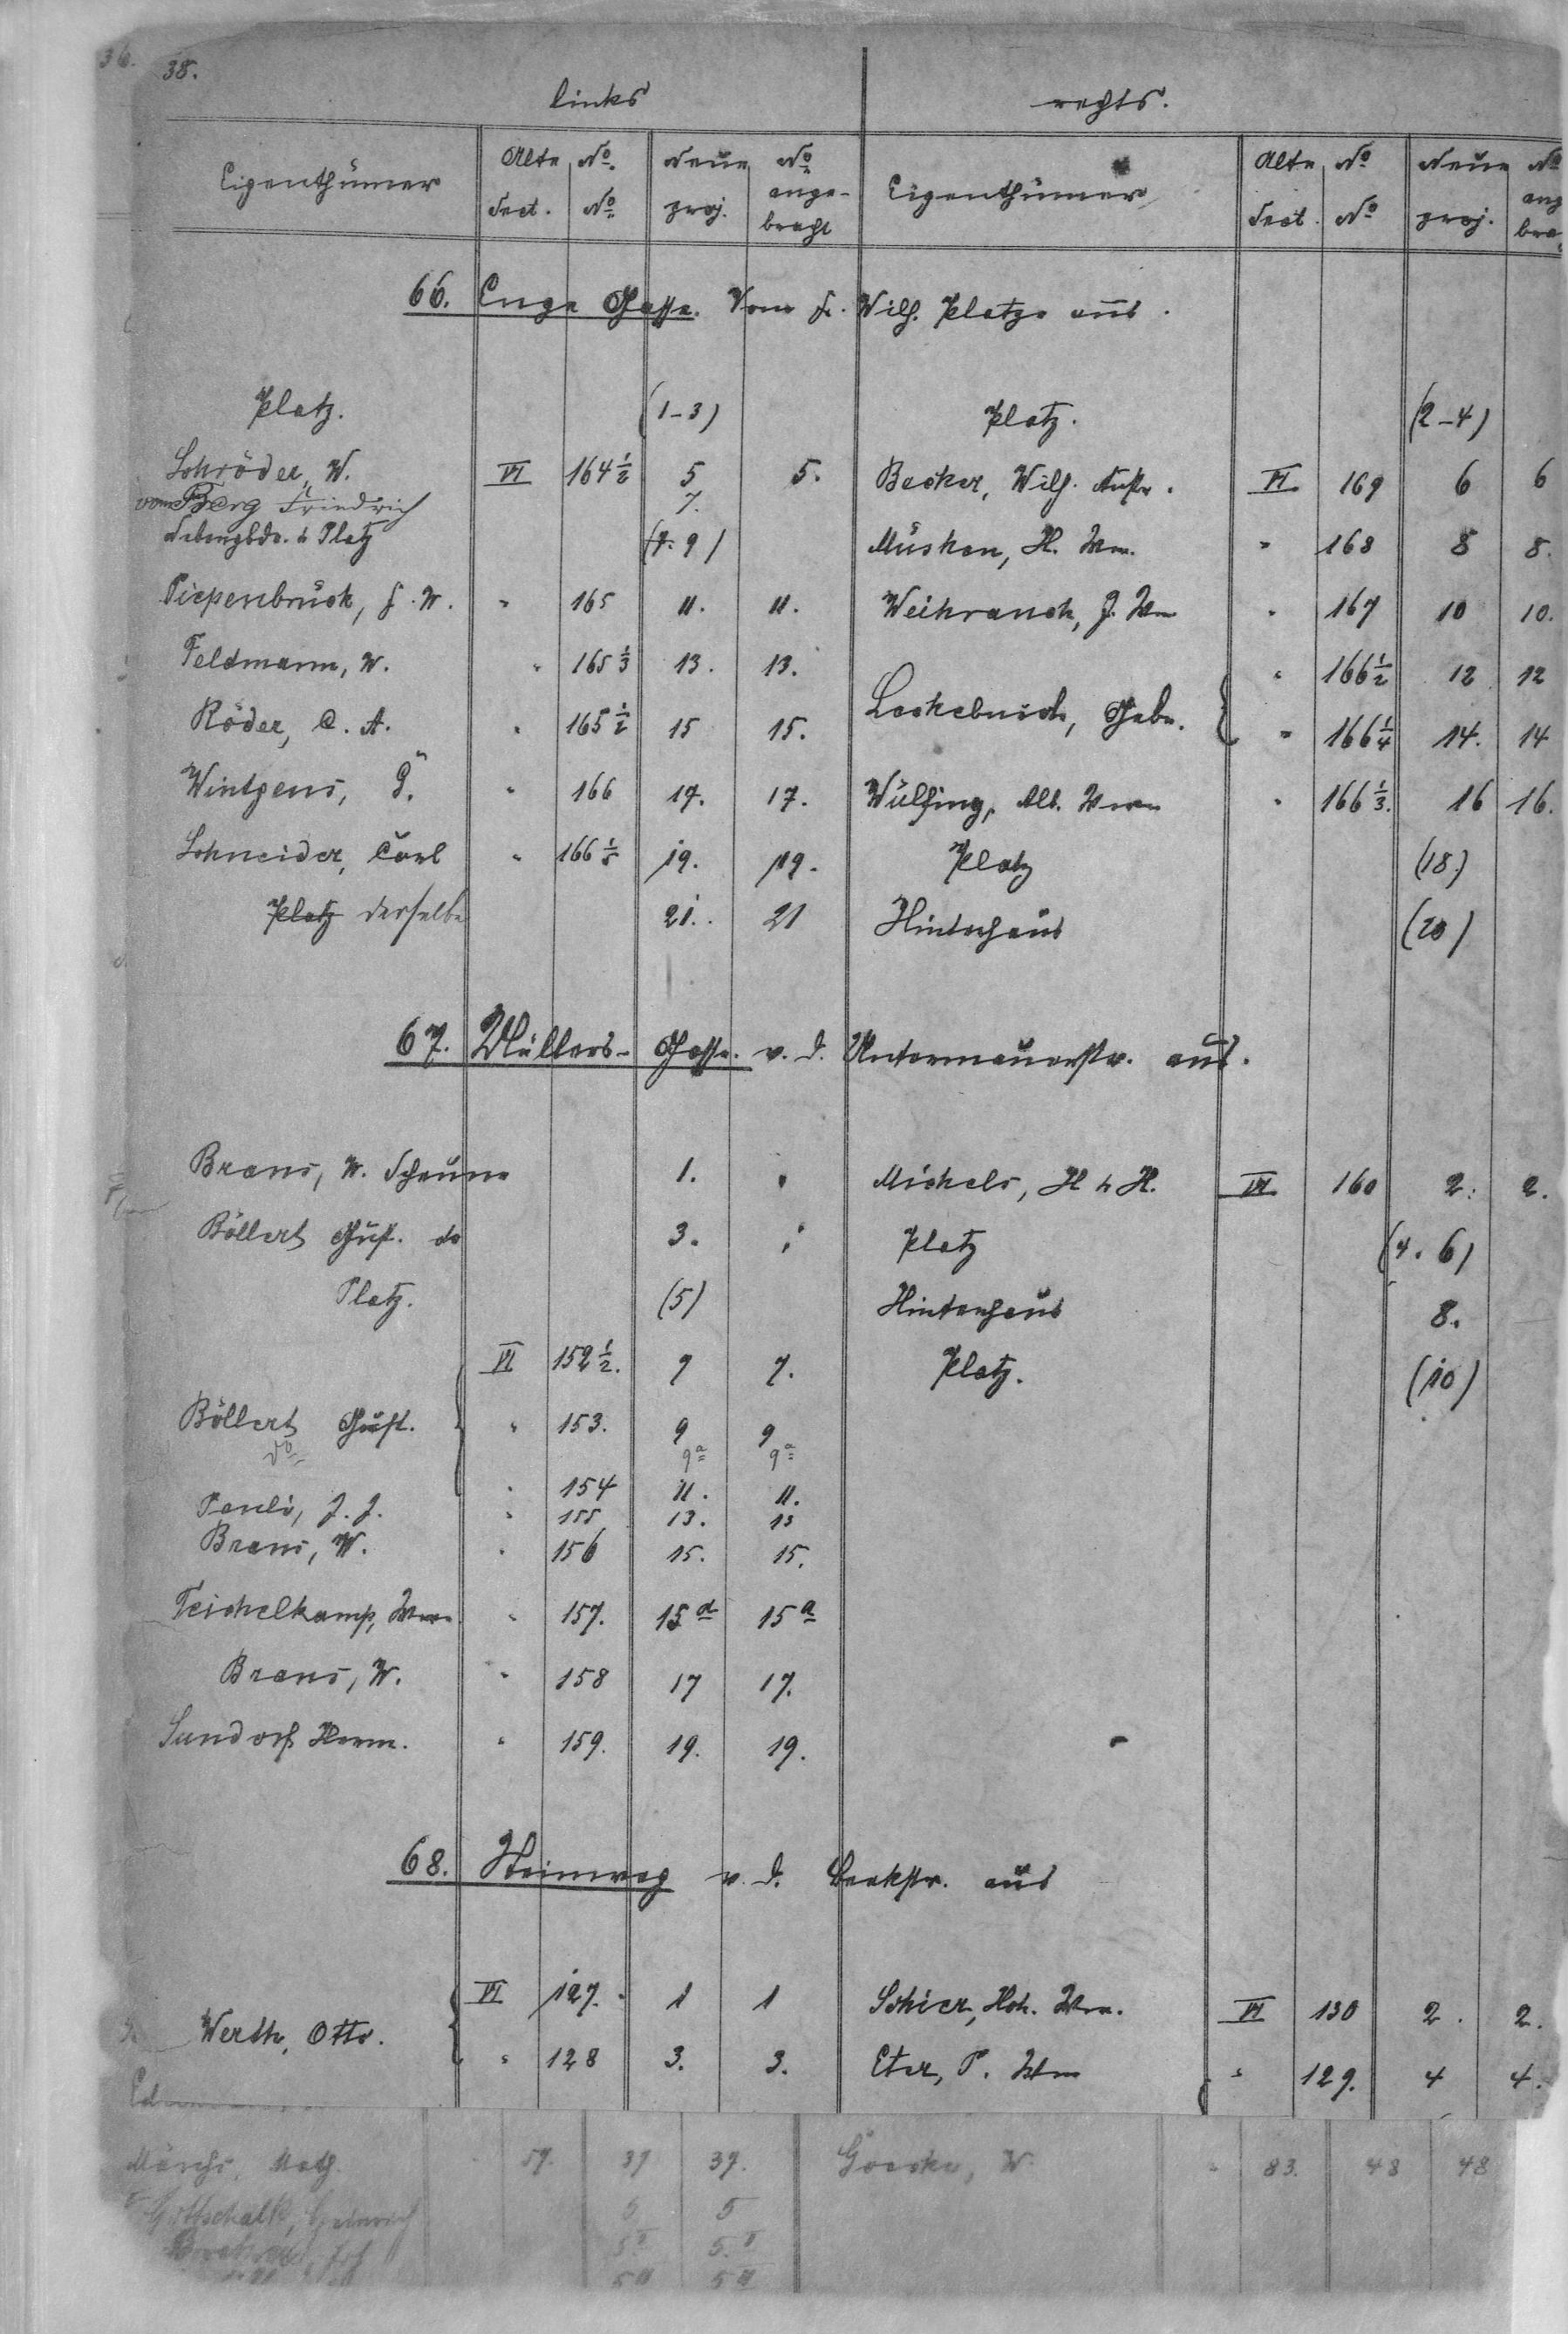 36.
38.
links rechts.
Eigenthümer Alte No. Neue No Eigenthümer Alte No Neue No
Sect. No. proj. ange- Sect. No proj. ang
bracht bra
66. Enge Gasse. Vom Fr. Wilh. Platze aus.
Platz. (1-3) Platz. (2-4)
Schröder, W. VI 164 1/2 5 5. Becker, Wilh. VI 169 6 6
vom Berg Friedrich 7.
Nebengbde. & Platz 9) Müsken, H. Wwe. " 168 8 8.
Piepenbruck, F. W. " 165 11. 11. Weihrauch, J. Wwe " 167 10 10.
Feldmann, W. " 165 1/3 13. 13. " 166 1/2 12 12
Röder, C. A. " 165 1/2 15 15. Leckebusch, Gebr. " 166 1/4 14. 14
Wintgens, " 166 17. 17. Wülfing, Alb. Wwe " 166 1/3. 16 16.
Schneider, Carl " 166 1/5 19. 19. Platz (18.)
Platz derselbe 21. 21 Hinterhaus (20)
67. Müllers- Gasse. v. d. Untermauerstr. aus.
Brans, W. Scheune 1. " Michels, H & H. VI 160 2. 2.
Böllert Gust. do 3. " Platz (4. 6)
Platz. (5) Hinterhaus 8.
VI 152 1/2. 7 7. Platz. (10)
Böllert Gust. " 153. 9 9
do 9a 9a
" 154 11. 11.
Pauli, J. J. " 155 13. 13
Brans, W. " 156 15. 15.
Teichelkamp, Wwe. " 157. 15a 15a
Brans, W. " 158 17 17.
Sundorf Herm. " 159. 19. 19.
68. Steinweg v. d. Beekstr. aus
VI 127. 1 1 Schier, Hch. Wwe. VI 130 2. 2.
Werth, Otto. " 128 3. 3. Eter, P. Wwe " 129. 4 4.
Math. 57. 37 37. W. " 83. 48 48
Gottschalk, Heinrich 5 5
5II 5.II
5III 5III